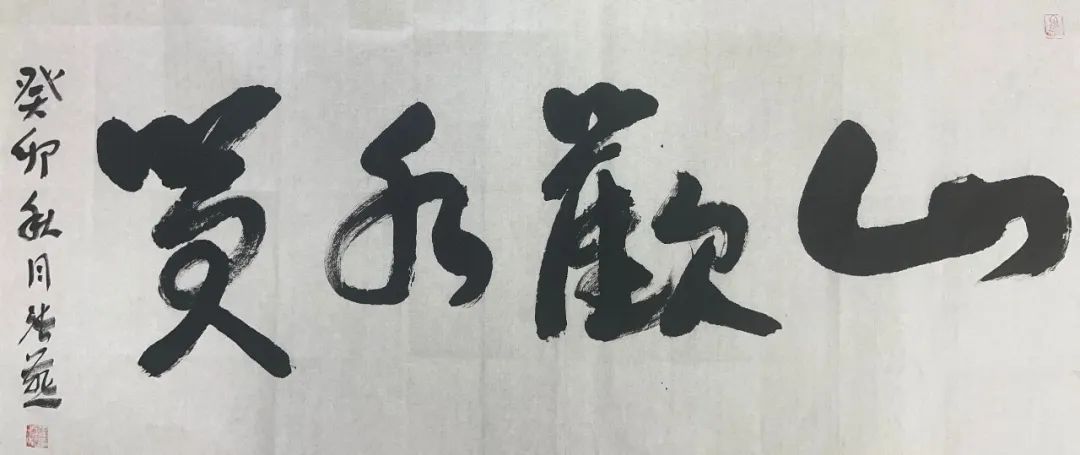 山歡水笑
癸卯秋月